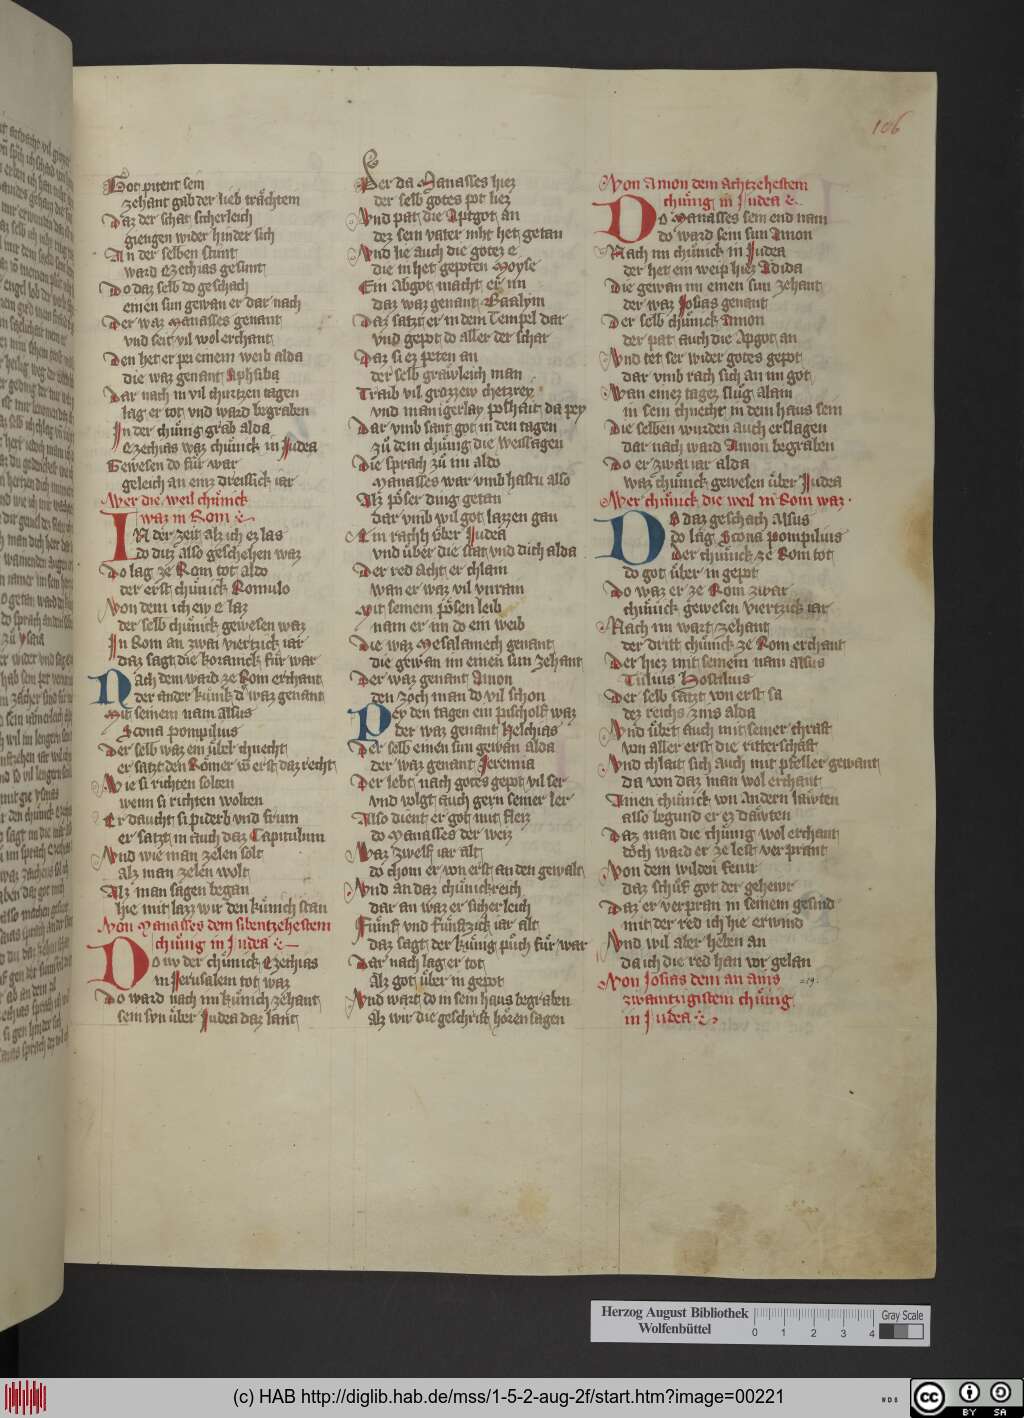 106
Got pitent sein
zehant gab der lieb trächtem
Daz der schat sicherleich
giengen wider hinder sich
An der selben stunt
ward Ezechias gesunt
Do daz selb do geschach
einen sun gewan er dar nach
Der waz Manasses genant
vnd seit vil wol erchant
Den het er pei einem weib alda
die waz genant Aphsiba
Dar nach in vil churtzen tagen
lag er tot vnd ward begraben
In der chüng grab alda
Ezechias waz chünick in Judea
Gewesen do für war
geleich an einz dreissick iar
Wer die weil chünick
waz in Rom
IN der zeit alz ich ez las
do ditz also geschehen waz
Do lag ze Rom tot aldo
der erst chünick Romulo
Von dem ich ew e laz
der selb chünick gewesen waz
In Rom an zwai viertzick iar
daz sagt die koranick für war
Nach dem ward ze Rom erchant
der ander künik der waz genant
Mit seinem nam alsus
Scona pompilius
Der selb waz ein übel chnecht
er satzt den Römer von erst daz recht
Wie si richten solten
wenn si richten wolten
Er daucht si piderb vnd frum
er satzt in auch daz Capitulum
Vnd wie man zelen solt
alz man zelen wolt
Alz man sagen began
hie mit lazz wir den künich stan
Von Manasses dem sibentzehestem
chünig in Judea
Do nv der chünick Ezechias
in Jerusalem tot waz
Do ward nach im künich zehant
sein svn über Judea daz lant
Der da Manasses hiez
der selb gotes pot liez
Vnd pat die Aptgot an
dez sein vater niht het getan
Vnd lie auch die gotez e
die in het gepoten Moyse
Ein Abgot macht er im
daz waz genant Baalym
Daz satzt er in dem Tempel dar
vnd gepot do aller der schar
Daz si ez peten an
der selb gräwleich man
Traib vil grozzew chetzrey
vnd manigerlay poshait da pey
Dar vmb sant got in den tagen
zü dem chüng die weissagen
Die sprach zü im aldo
Manasses war vmb hastu also
Alz pöser ding getan
dar vmb wil got lazzen gan
Ein rachh über Judea
vnd über die stat vnd dich alda
Der red acht er chlain
wan er waz vil vnrain
Mit seinem pösen leib
nam er im do ein weib
Die waz Mesalamech genant
die gewan im einen sun zehant
Der waz genant Amon
den zoch man do vil schon
Pey den tagen ein pischolf waz
der waz genant Helchias
Der selb einen sun gewan alda
der waz genant Jeremia
Der lebt nach gotes gepot vil ser
vnd volgt auch gern seiner ler
Also dient er got mit fleiz
do Manasses der weiz
Waz zwelf iar alt
do chom er von erst an den gewalt
Vnd an daz chünickreich
dar an waz er sicherleich
Fünf vnd fünftzick iar alt
daz sagt der künig püch für war
Dar nach lag er tot
alz got über in gepot
Vnd wart do in sein haus begraben
alz wir die geschrift hören sagen
Von Amon dem achtzehestem
chünig in Judea
Do Manasses sein end nam
do ward sein sun Amon
Nach im chünick in Judea
der het ein weip hiez Adida
Die gewan im einen sun zehant
der waz Josias genant
Der selb chünick Amon
der pat auch die Apgot an
Vnd tet ser wider gotes gepot
dar vmb rach sich an im got
Wan einez tagez slug alain
in sein chnecht in dem haus sein
Die selben wurden auch erslagen
dar nach ward Amon begraben
Do er zwai iar alda
waz chünick gewesen über Judea
Wer chünick die weil in Rom waz
Do daz geschach Alsus
do lag Scona pompilius
Der chünick ze Rom tot
do got über in gepot
Do waz er ze Rom zwar
chünick gewesen viertzick iar
Nach im wart zehant
der dritt chünick ze Rom erchant
Der hiez mit seinem nam alsus
Tulius Hostilius
Der selb satzt von erst sa
dez reichs zins alda
Vnd übet auch mit seiner chraft
von aller erst die ritterschaft
Vnd chlait sich auch mit pfeller gewant
da von daz man wol erchant
Ainen chünick von andern läwten
also begund er ez däwten
Daz man die chünig wol erchant
doch ward er ze lest verprant
Von dem wilden fewr
daz schüf got der gehewr
Daz er verpran in seinem gesind
mit der red ich hie erwind
Vnd wil aber heben an
da ich die red han vor gelan
Von Josias dem an ains
zwantzigistem chünig
in Judea
Herzog August Bibliothek
Wolfenbüttel
0 1 2 3 4
Gray Scale
(c) HAB http://diglib.hab.de/mss/1-5-2-aug-2f/start.htm?image=00221
cc BY SA